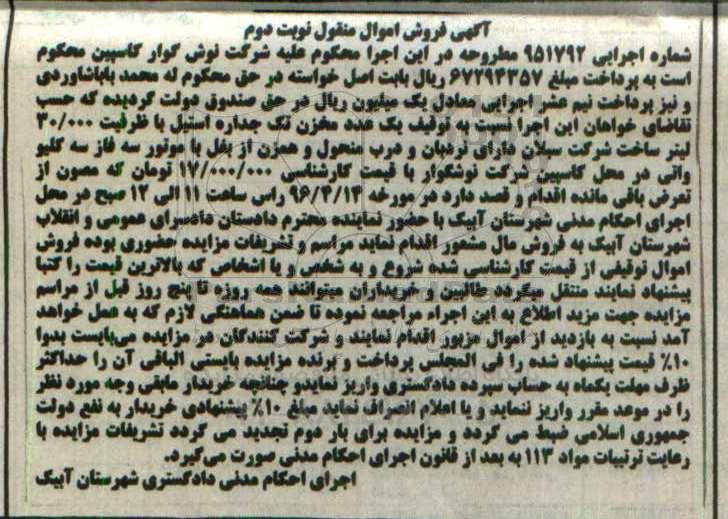 آگهی فروش اموال منقول نوبت دوم
شماره اجرایی ۹۵۱۷۹۲ مطروحه در این اجرا محکوم علیه شرکت نوش گوار کاسپین محکوم
است به پرداخت مبلغ ۶۷۲۹۴۳۵۷ ریال بابت اصل خواسته در حق محکوم له محمد باباشاوردی
و نیز پرداخت نیم عشر اجرایی معادل یک میلیون ریال در حق صندوق دولت گردیده که حسب
تقاضای خواهان این اجرا نسبت به توقیف یک عدد مخزن تک جداره استیل با ظرفیت ۳۰/۰۰۰
لیتر ساخت شرکت سبلان دارای نردبان و درب منحول و همزن از بغل با موتور سه فاز سه کلیو
واتی در محل کاسپین شرکت نوشگوار با قیمت کارشناسی ۱۷/۰۰۰/۰۰۰ تومان که مصون از
تعرض باقی مانده اقدام و قصد دارد در مورخه ۹۶/۴/۱۴ راس ساعت ۱۱ الی ۱۲ صبح در محل
اجرای احکام مدنی شهرستان آبیک با حضور نماینده محترم دادستان دادسرای عمومی و انقلاب
شهرستان آبیک به فروش مال مشعور اقدام نماید مراسم و تشریفات مزایده حضوری بوده فروش
اموال توقیفی از قیمت کارشناسی شده شروع و به شخص و یا اشخاص که بالاترین قیمت را کتبا
پیشنهاد نمایند منتقل میگردد طالبین و خریداران میتوانند همه روزه تا پنج روز قبل از مراسم
مزایده جهت مزید اطلاع به این اجراء مراجعه نموده تا ضمن هماهنگی لازم که به عمل خواهد
آمد نسبت به بازدید از اموال مزبور اقدام نمایند و شرکت کنندگان در مزایده می‌بایست بدوا
۱۰٪ قیمت پیشنهاد شده را فی المجلس پرداخت و برنده مزایده بایستی الباقی آن را حداکثر
ظرف مهلت یکماه به حساب سپرده دادگستری واریز نمایدو چنانچه خریدار مابقی وجه مورد نظر
را در موعد مقرر واریز ننماید و یا اعلام انصراف نماید مبلغ ۱۰٪ پیشنهادی خریدار به نفع دولت
جمهوری اسلامی ضبط می گردد و مزایده برای بار دوم تجدید می گردد تشریفات مزایده با
رعایت ترتیبات مواد ۱۱۳ به بعد از قانون اجرای احکام مدنی صورت می‌گیرد.
اجرای احکام مدنی دادگستری شهرستان آبیک